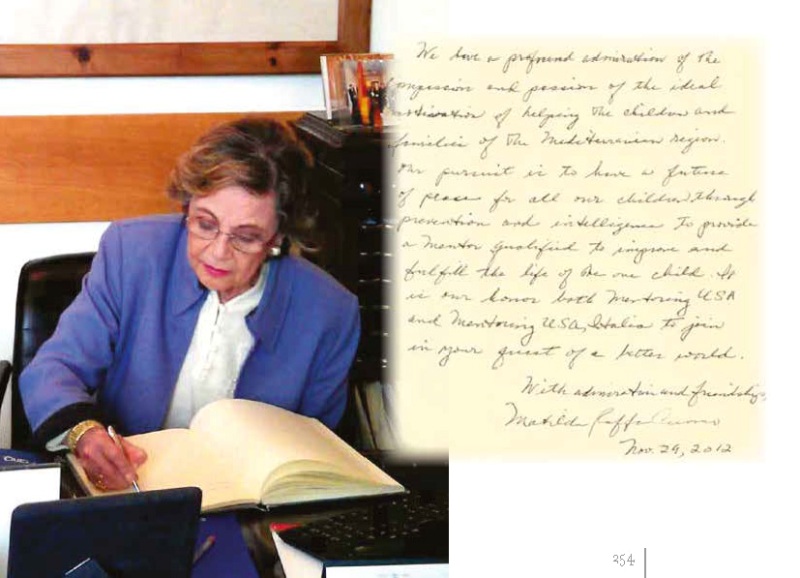 We have a profound admiration of the
compassion and passion of the ideal
motivation of helping the children and
families of the Mediterranean region.
Our pursuit is to have a future
of peace for all our children, through
prevention and intelligence to provide
a Mentor qualified to improve and
fulfill the life of the one child. It
is our honor both Mentoring USA
and Mentoring USA, Italia to join
in your quest of a better world.
With admiration and friendship,
Matilda Raffa Cuomo
Nov. 29, 2012
354